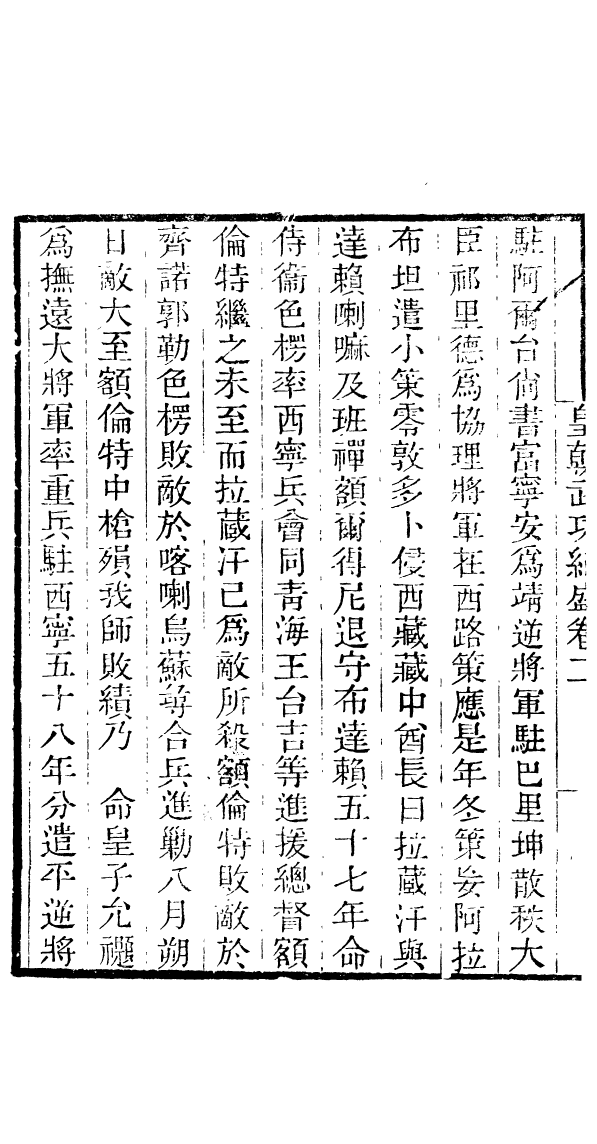 皇朝武功紀盛卷二
駐阿爾台尙書富寧安爲靖逆將軍駐巴里坤散秩大
臣祁里德爲協理將軍在西路策應是年冬策妄阿拉
布坦遣小策零敦多卜侵西藏藏中酋長曰拉藏汗與
達賴喇嘛及班禪額爾得尼退守布達賴五十七年命
侍衞色楞率西寧兵會同青海王台吉等進援總督額
倫特繼之未至而拉藏汗已爲敵所殺額倫特敗敵於
齊諾郭勒色楞敗敵於喀喇烏蘇等合兵進勦八月朔
日敵大至額倫特中槍殞我師敗績乃　命皇子允禵
爲撫遠大將軍率重兵駐西寧五十八年分遣平逆將